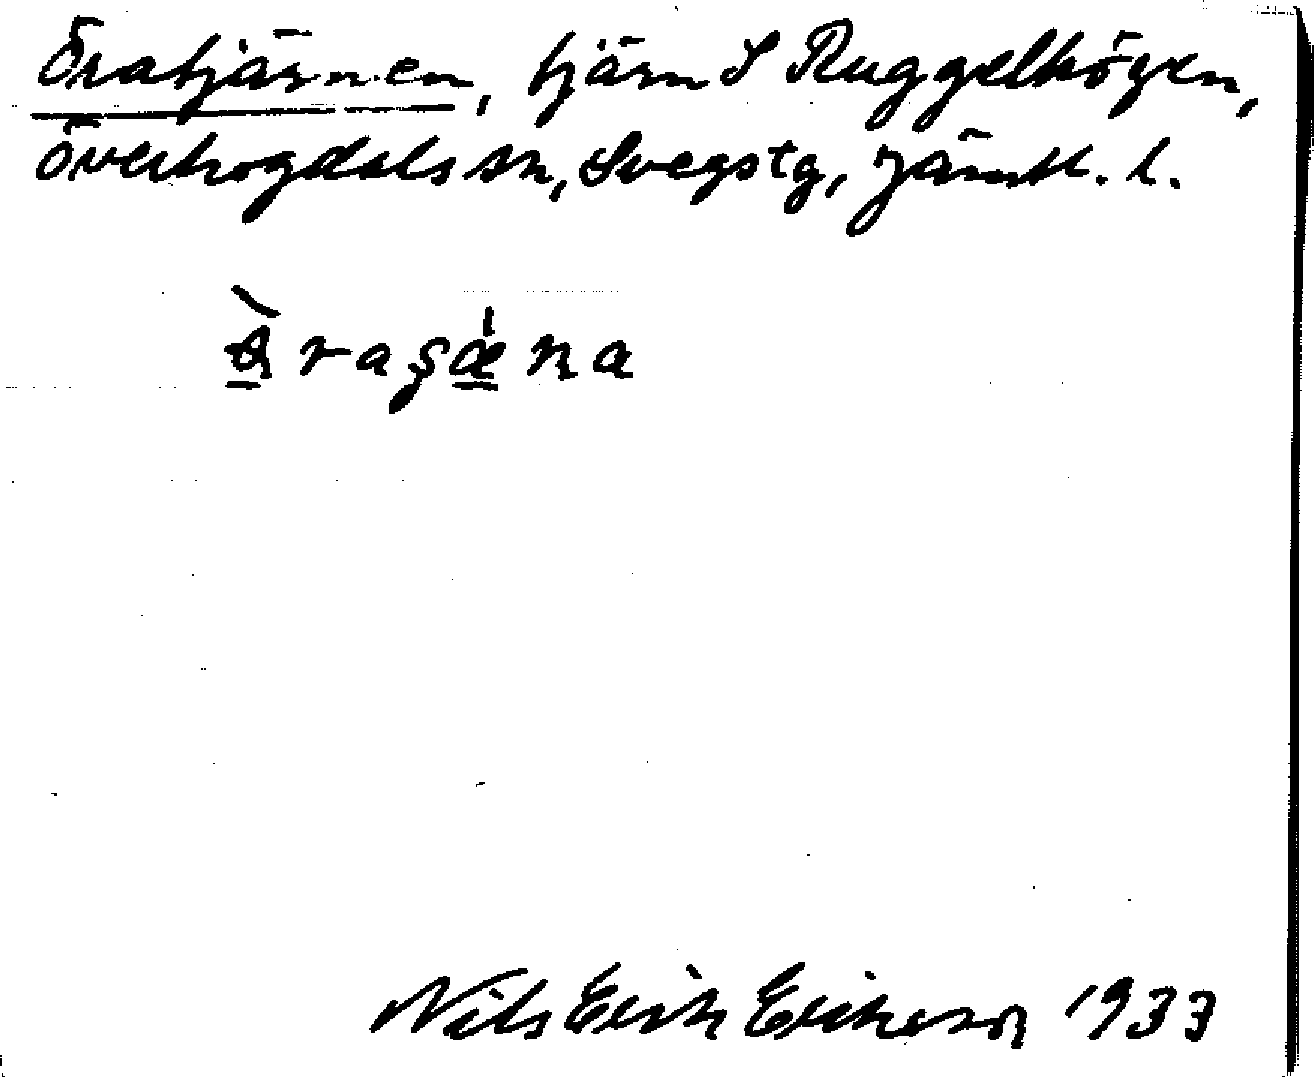 Öratjärnen, tjärn S Ruggelhögen,
Överhogdals sn, Svegs tg, Jämtl. l.
Nils Erik Erikson 1933